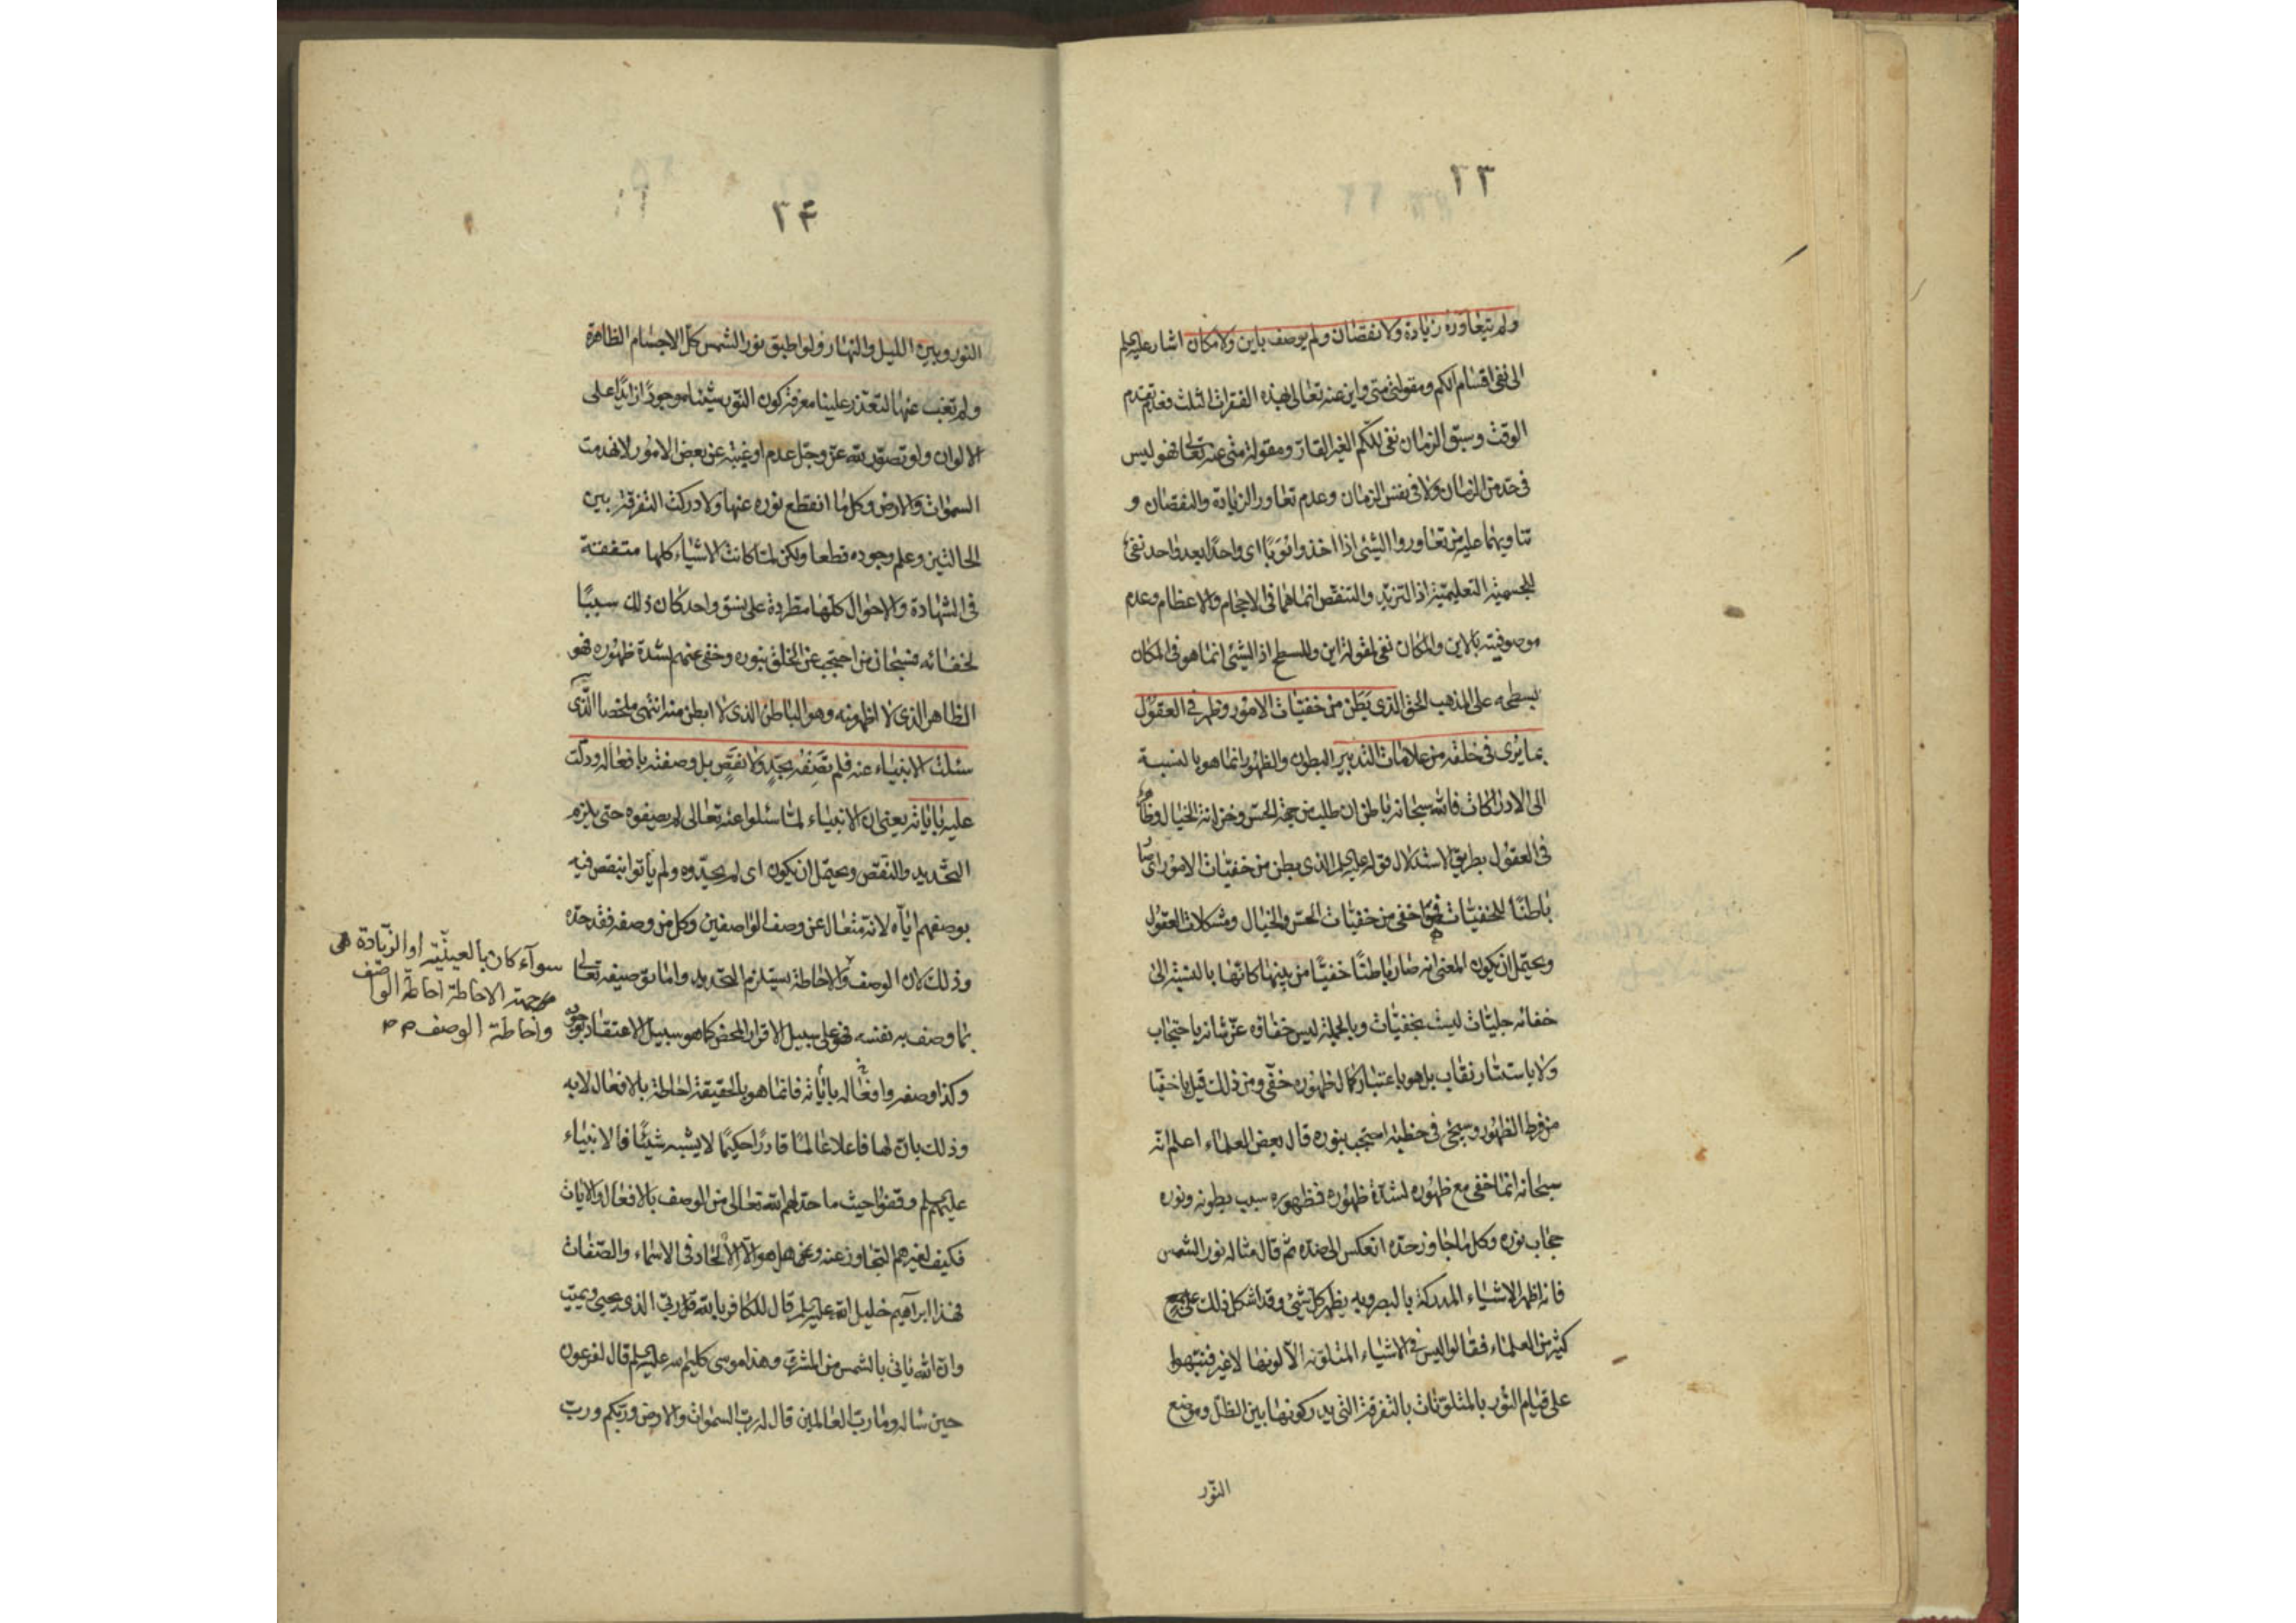 ٢٣
ولم يتعاوره زيادة ولا نقصان ولم يوصف باين ولا مكان اشار عليه‌السلم
الى نفى اقسام الكم ومقولتى متى واين عنه تعالى بهذه الفقرات الثلث فعدم تقدم
الوقت وسبق الزمان نفى للكم الغير القار ومقولة متى عنه تعالى فهو ليس
فى حد من الزمان ولا فى نفس الزمان وعدم تعاور الزيادة والنقصان و
تناوبهما عليه من تعاوروا الشئ اذا اخذوا نوبًا اى واحدًا بعد واحد نفى
للجسمية التعليمية اذ التزيد والتنقص انما هما فى الاجسام والاعظام وعدم
موصوفيته بالاين والمكان نفى لمقولة اين وللسطح اذ الشئ انما هو فى المكان
بسطحه على المذهب الحق الذى بَطَن من خفيّات الامور وظهر فى العقول
بما يُرى فى خلقه من علامات التدبير البطون والظهور انما هو بالنسبة
الى الادراكات فالله سبحانه باطن ان طلب من جهة الحس وخزانة الخيال وظاهر
فى العقول بطريق الاستدلال قوله عليه‌السلم الذى بطن من خفيات الامور اى صار
باطنًا للخفيات فهو اخفى من خفيات الحس والخيال ومشكلات العقول
ويحتمل ان يكون المعنى انه صار باطنًا خفيًّا من بينها كانّها بالنسبة الى
خفائه جليّات ليست بخفيّات وبالجملة ليس خفاؤه عزّ شانه باحتجاب
ولا باستتار نقاب بل هو باعتبار كمال ظهوره خفّى ومن ذلك قيل يا خفيّا
من فرط الظهور وسيجئ فى خطبة احتجب بنوره قال بعض العلماء اعلم انّه
سبحانه انما خفى مع ظهوره لشدّة ظهوره فظهوره سبب بطونه ونوره
حجاب نوره وكل ما جاوز حدّه انعكس الى ضدّه ثمّ قال مثاله نور الشمس
فانه اظهر الاشياء المدركة بالبصر وبه يظهر كل شئ وقد اشكل ذلك على جمع
كثير من العلماء فقالوا ليس فى الاشياء المتلونه الّا لونها لا غير فنبّهوا
على قيام النّور بالمتلوّنات بالتفرقة التى يدركونها بين الظل وموضع
النّور
٢٤
النّور وبين الليل والنهار ولو اطبق نور الشمس كل الاجسام الظاهرة
ولم تغب عنها لتعذر علينا معرفة كون النّور شيئا موجودًا زايدًا على
الالوان ولو تصوّر لله عزّ وجلّ عدم او غيبة عن بعض الامور لانهدمت
السموات والارض وكل ما انقطع نوره عنها ولادركت التفرقة بين
الحالتين وعلم وجوده قطعا ولكن لمّا كانت الاشياء كلها متفقة
فى الشهادة والاحوال كلّها مطردة على نسق واحد كان ذلك سببًا
لخفائه فسبحان من احتجب عن الخلق بنوره وخفى عنهم لشدّة ظهوره فهو
الظاهر الذى لا اظهر منه وهو الباطن الذى لا ابطن منه انتهى ملخصا الّذى
سئلت الانبياء عنه فلم تَصِفْه بحدٍّ ولا نقصٍ بل وصفته بافعاله ودلّت
عليه باياته يعنى ان الانبياء لمّا سئلوا عنه تعالى لم يصفوه حتى يلزم
التحديد والنقص ويحتمل ان يكون اى لم يحدّوه ولم يأتوا بنقص فيه
بوصفهم ايّاه لانه متعال عن وصف الواصفين وكل من وصفه فقد حدّه
وذلك لان الوصف والاحاطة يستلزم التحديد واما توصيفه تعالى
بما وصف به نفسه فهو على سبيل الاقرار المحض كما هو سبيل الاعتقاد بوجوده
وكذا وصفه وافعاله باياته فانما هو بالحقيقة احاطة بالافعال لا به
وذلك بان لها فاعلا عالمًا قادرًا حكيمًا لا يشبه شيئًا فالانبياء
عليهم‌السلم وقفوا حيث ما حدّ لهم الله تعالى من الوصف بالافعال والايات
فكيف لغيرهم التجاوز عنه وهل هو الّا الالحاد فى الاسماء والصّفات
فهذا ابراهيم خليل الله عليه‌السلم قال للكافر بالله قل ربّى الذى يحيى ويميت
وان الله ياتى بالشمس من المشرق وهذا موسى كليم الله عليه‌السلم قال لفرعون
حين ساله وما رب العالمين قال له ربّ السموات والارض وربّكم وربّ
سوآء كان بالعينيّة او الزّيادة هى
من جهة الاحاطة احاطة الواصف
واحاطة الوصف